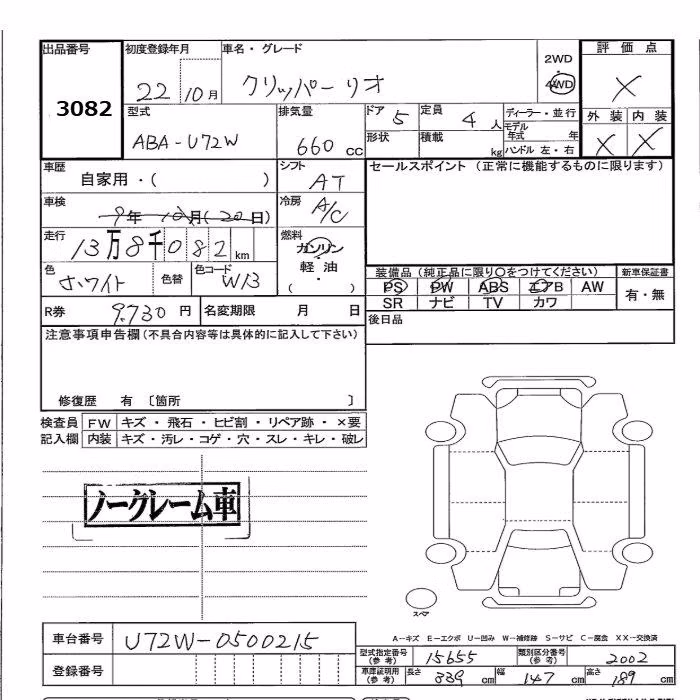 出品番号 3082
初度登録年月 22 10月
車名・グレード クリッパーリオ
2WD 4WD
評価点 X
型式 ABA-U72W
排気量 660 cc
ドア 5 定員 4人
形状 積載 kg
ディーラー・並行
モデル年式 年
ハンドル 左・右
外装 内装
X X
車歴 自家用・( )
シフト AT
セールスポイント (正常に機能するものに限ります)
車検 9年10月(20日)
冷房 A/C
走行 13万8千082 km
燃料 ガソリン
軽油
( )
色 ホワイト 色替 色コード W13
装備品 (純正品に限り○をつけてください) 新車保証書
PS PW ABS エアB AW 有・無
SR ナビ TV カワ
R券 9,730 円 名変期限 月 日
後日品
注意事項申告欄(不具合内容等は具体的に記入して下さい)
修復歴 有 〔箇所 〕
検査員 FW キズ・飛石・ヒビ割・リペア跡・×要
記入欄 内装 キズ・汚レ・コゲ・穴・スレ・キレ・破レ
ノークレーム車
スペア
A-キズ E-エクボ U-凹み W-補修跡 S-サビ C-腐食 XX-交換済
車台番号 U72W-0500215
型式指定番号(参考) 15655 類別区分番号(参考) 2002
登録番号
車庫証明用(参考) 長さ 339 cm 幅 147 cm 高さ 189 cm